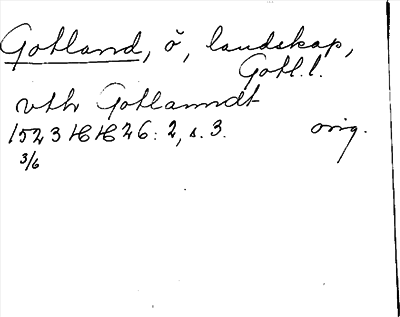 Gotland, ö, landskap,
Gotl.l.
vth Gotlanndt
1523 HH 26: 2, s. 3. orig.
3/6